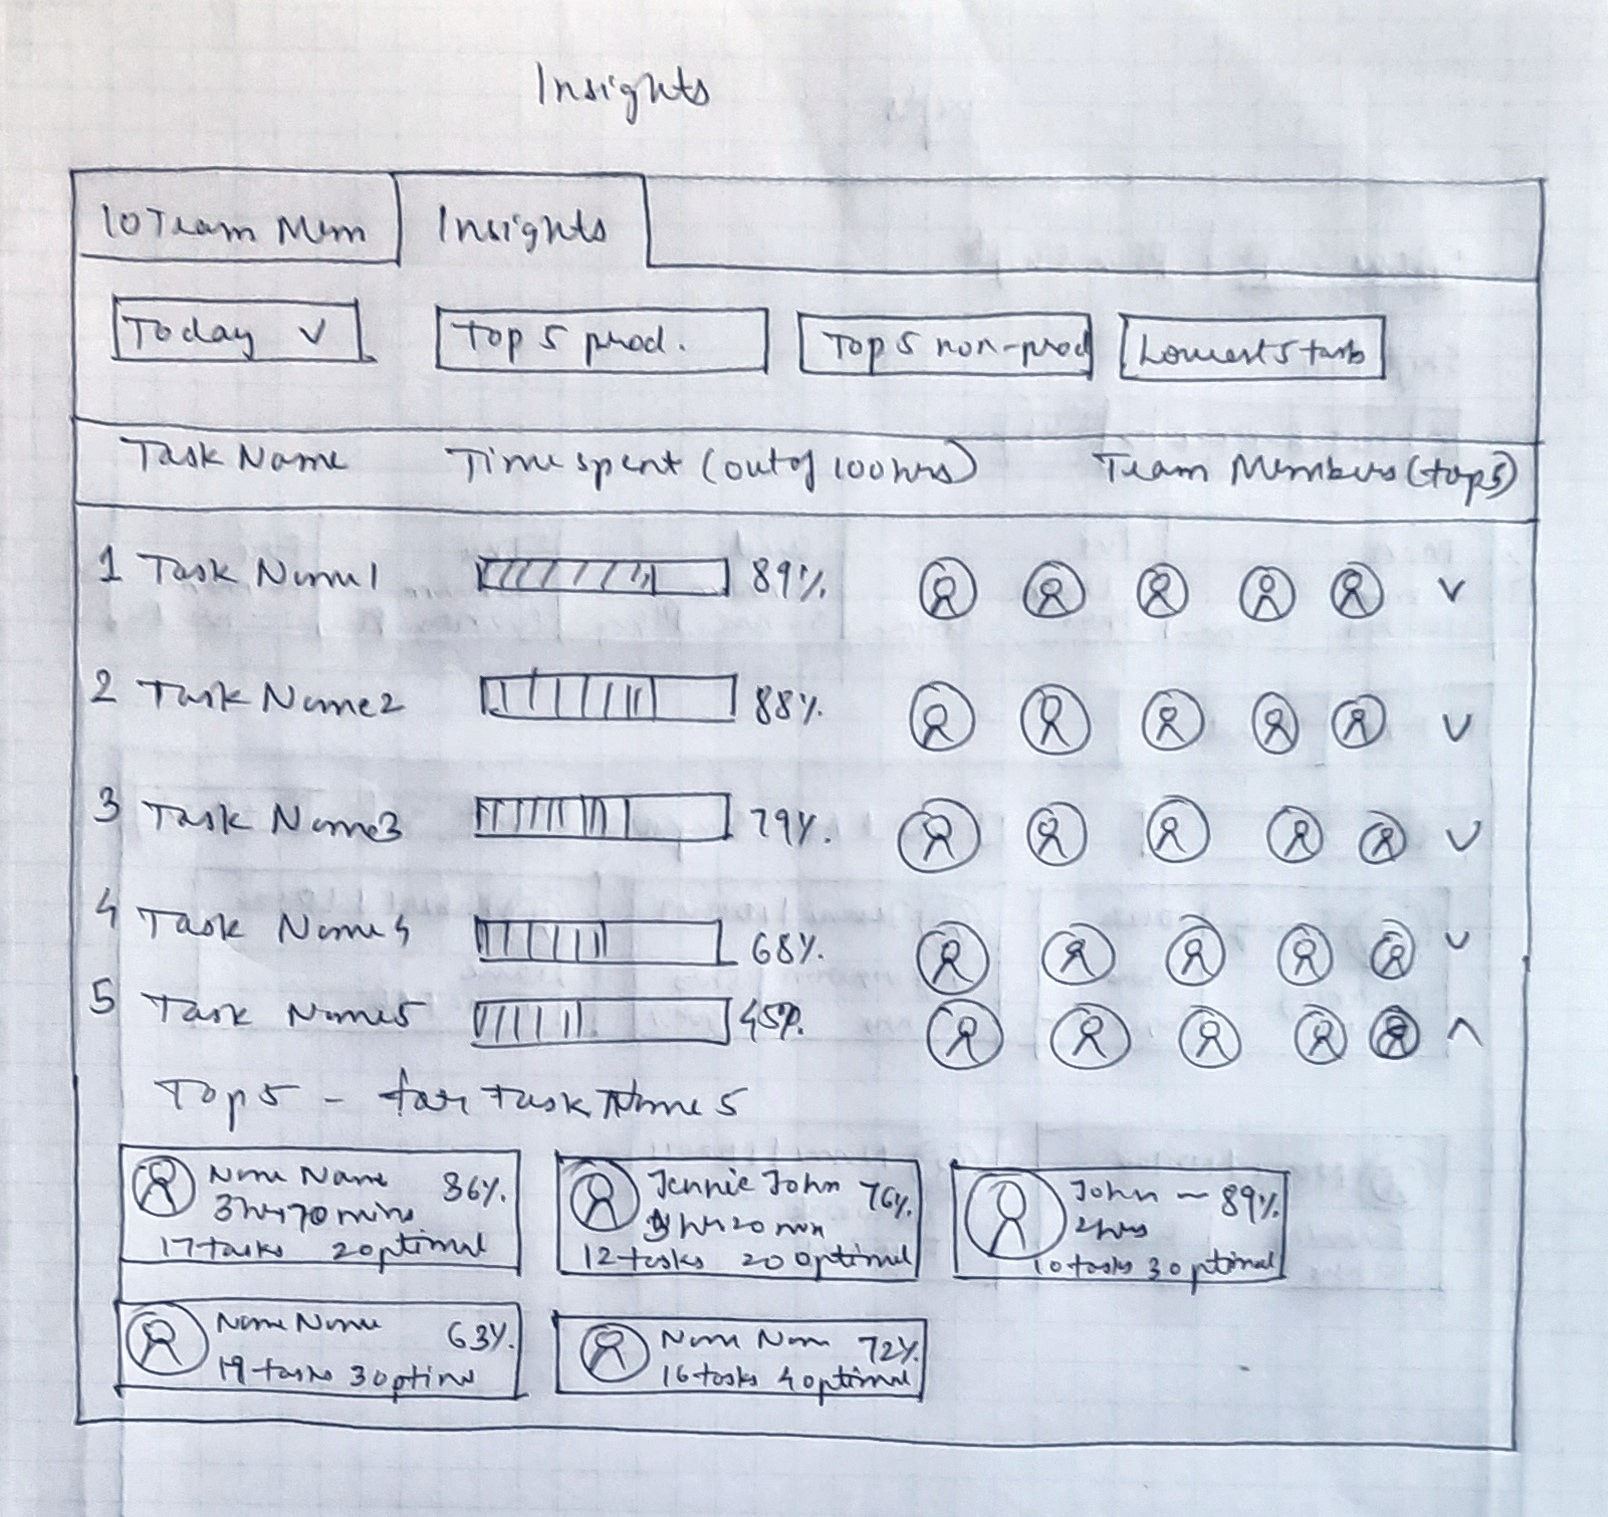 Insights
10 Team Mem Insights
Today Top 5 prod. Top 5 non-prod Lowest 5 tasks
Task Name Time spent (out of 100 hrs) Team Members (top 5)
1 Task Name1 89%
2 Task Name2 88%
3 Task Name3 79%
4 Task Name4 68%
5 Task Name5 45%
Top 5 - for Task Name 5
Name Name 86%
3 hrs 70 mins
17 tasks 2 optimal
Jennie John 76%
hrs 20 min
12 tasks 20 optimal
John 89%
2 hrs
10 tasks 3 optimal
Name Name 63%
19 tasks 3 optima
Name Nam 72%
16 tasks 4 optimal